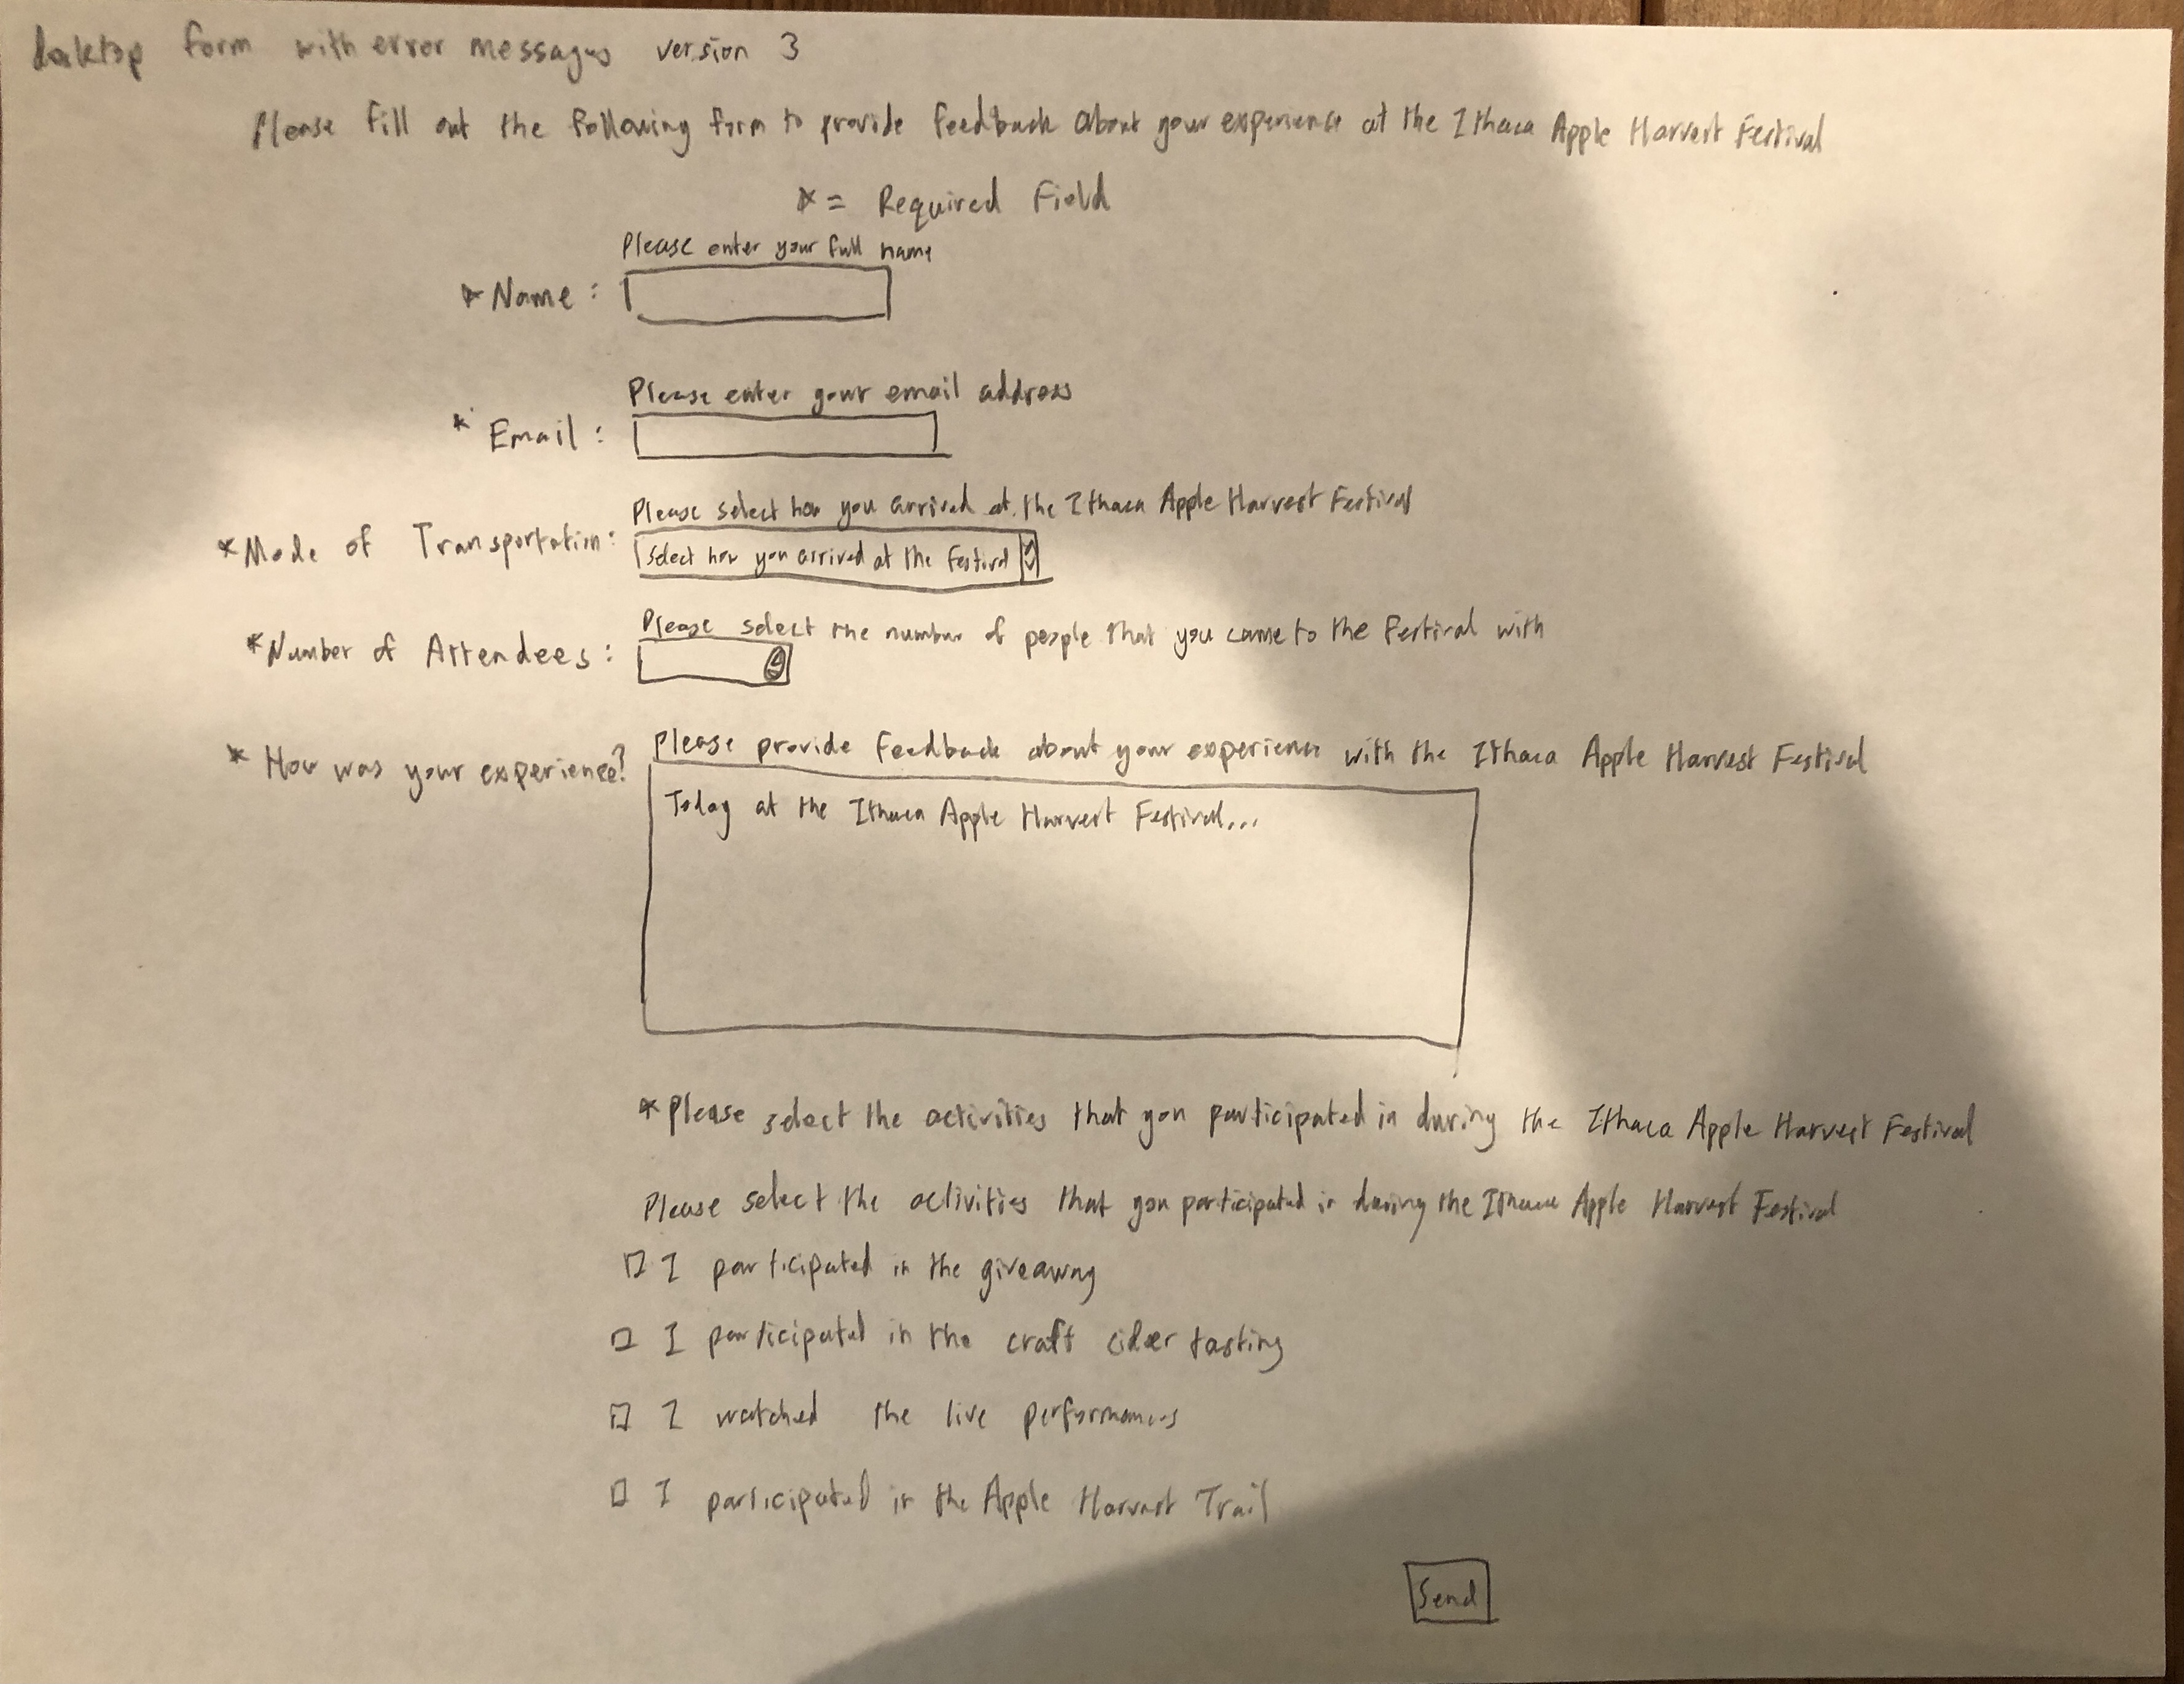 desktop form with error messages version 3
Please fill out the following form to provide feedback about your experience at the Ithaca Apple Harvest Festival
* = Required Field
Please enter your full name
* Name :
Please enter your email address
* Email :
Please select how you arrived at the Ithaca Apple Harvest Festival
* Mode of Transportation :
Select how you arrived at the festival
Please select the number of people that you came to the festival with
* Number of Attendees :
Please provide feedback about your experience with the Ithaca Apple Harvest Festival
* How was your experience?
Today at the Ithaca Apple Harvest Festival...
* Please select the activities that you participated in during the Ithaca Apple Harvest Festival
Please select the activities that you participated in during the Ithaca Apple Harvest Festival
I participated in the giveaway
I participated in the craft cider tasting
I watched the live performances
I participated in the Apple Harvest Trail
Send